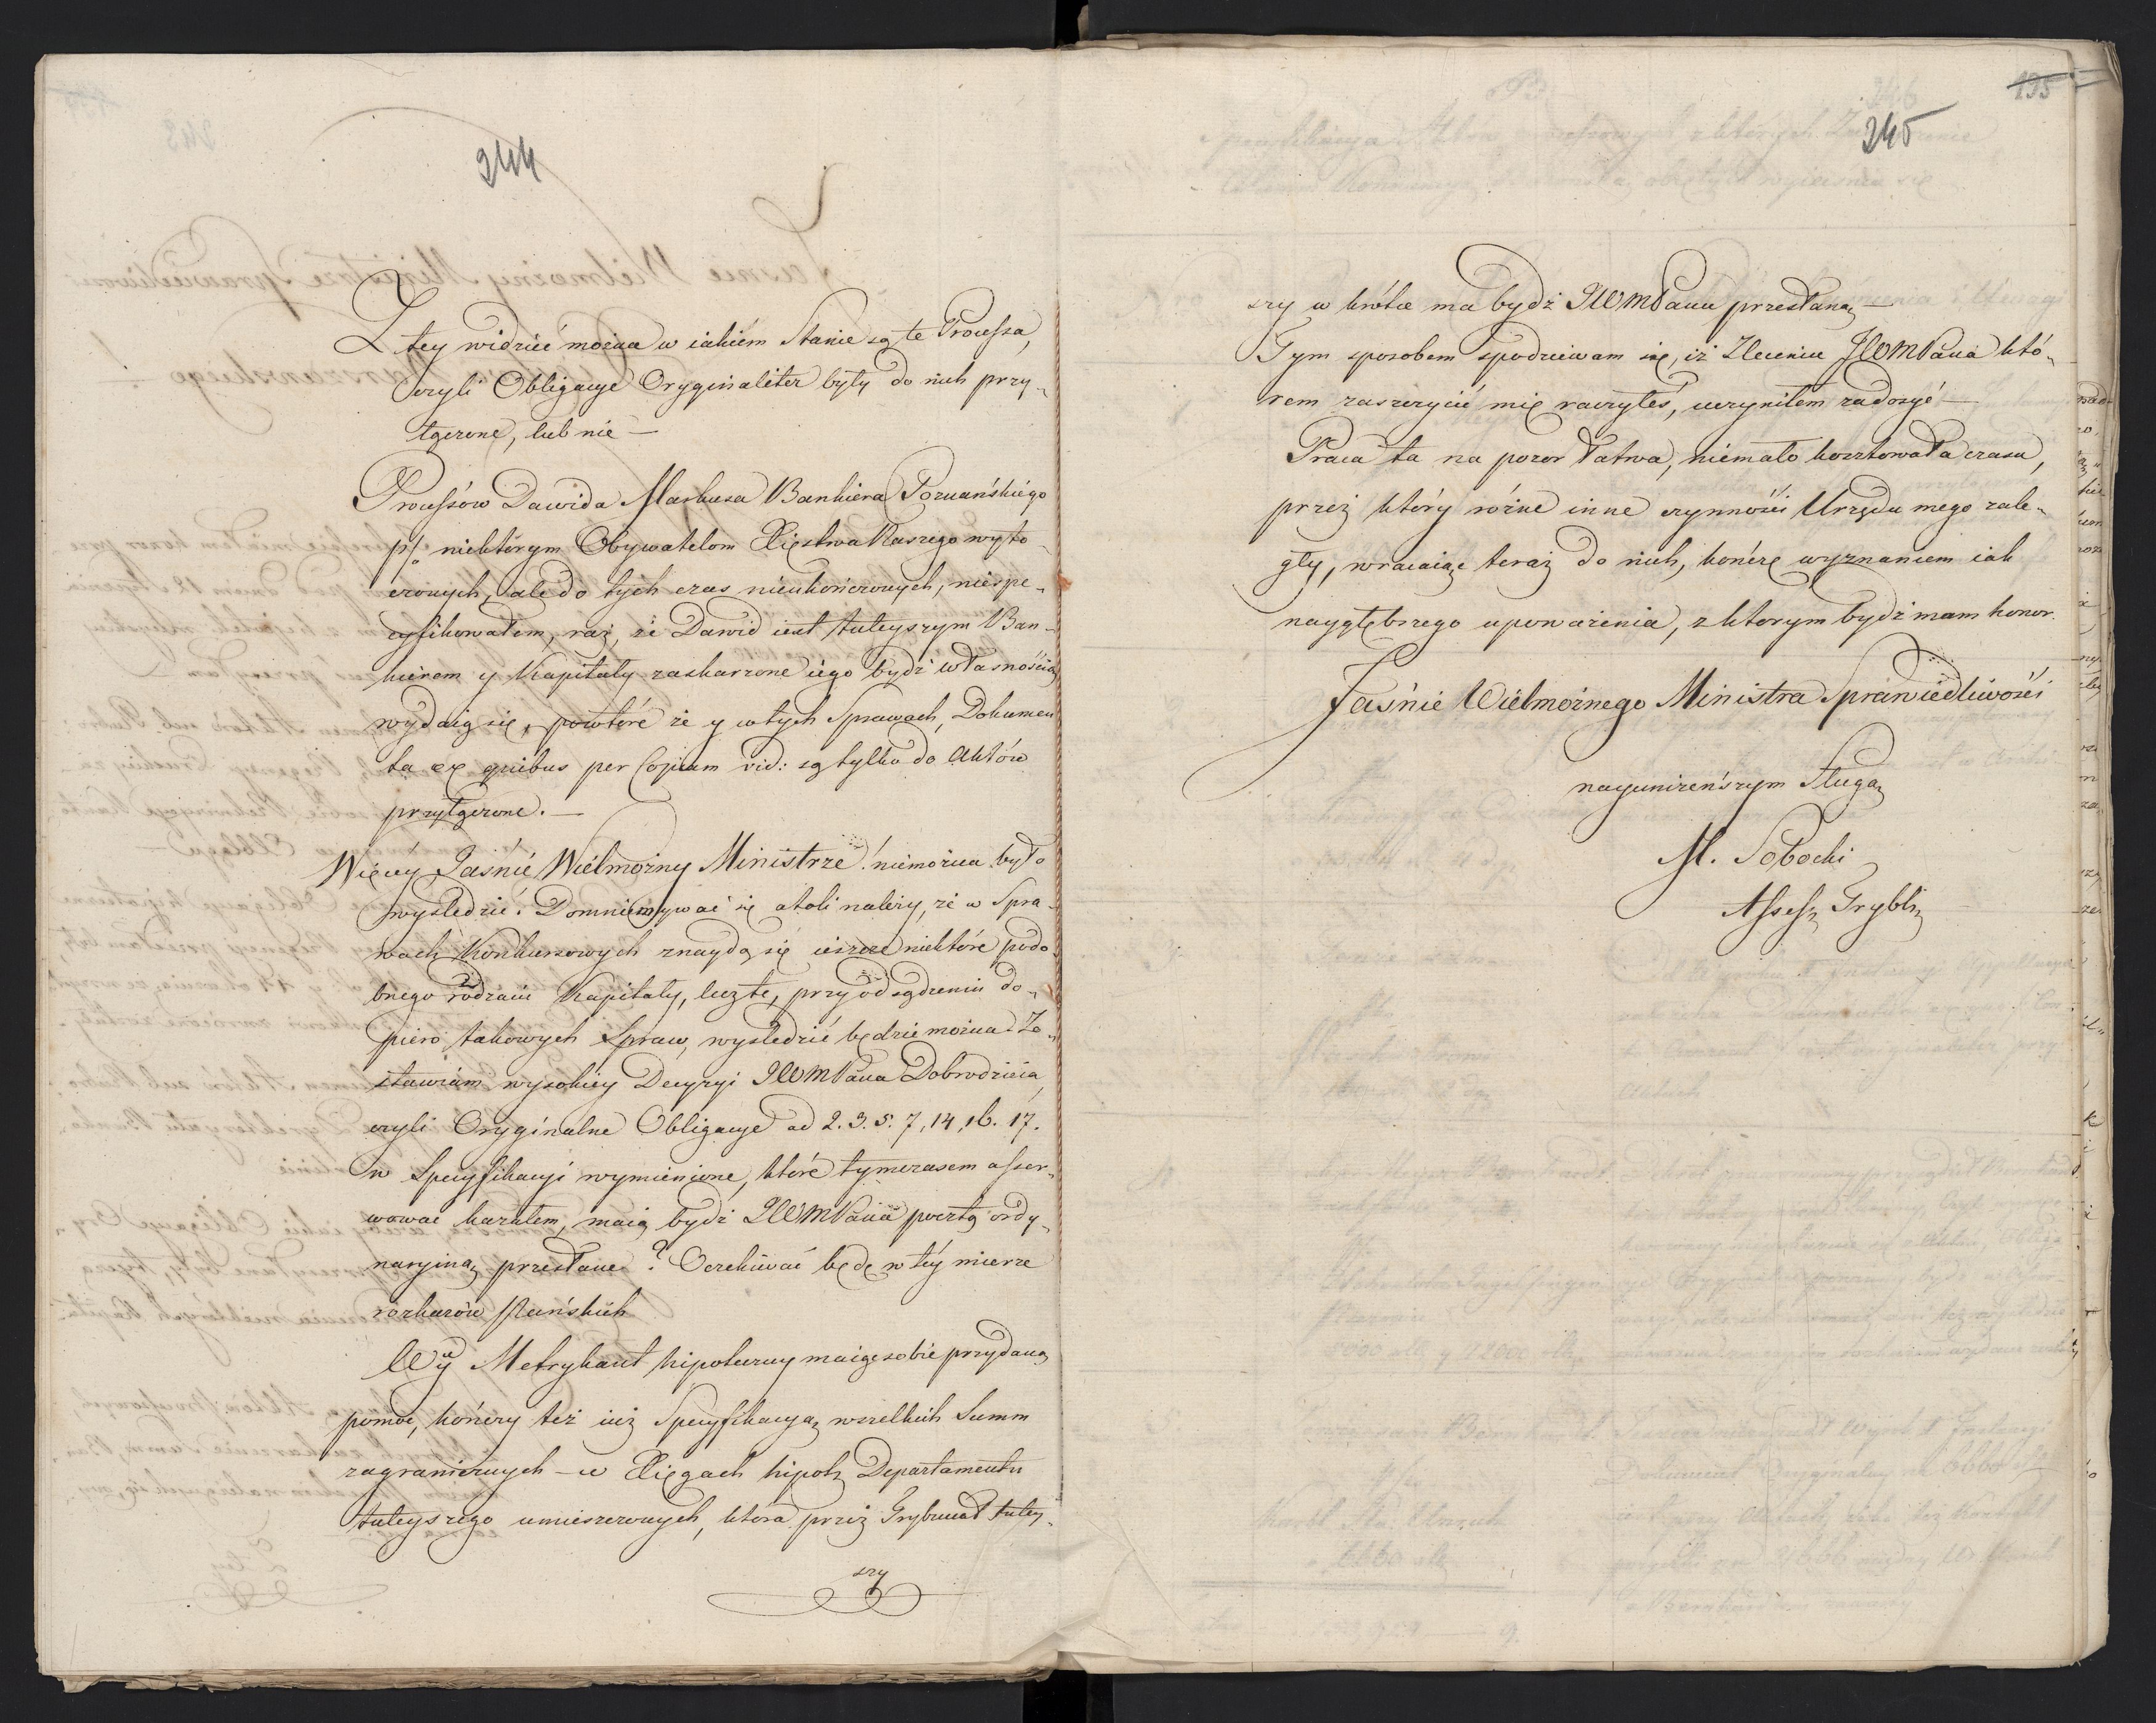 244
Z tey widzieć można w iakiém Stanie są te Processa,
czyli Obligacye Oryginaliter były do nich przy-
łączone, lub nie —
Processów Dawida Markusa Bankiera Poznańskiégo
p/. niektórym Obywatelom Xięstwa Naszego wyto-
czonych, ale do tych czas nieukończonych, niespe-
cyfikowałem, raz, że Dawid iest tuteyszym Ban-
kierem y Kapitały zaskarzone iego bydź własnością
wydaią się, powtóré że y w tych Sprawach, Dokumen
ta ex quibus per Copiam vid: są tylko do Aktów
przyłączone. —
Więcéy Jaśnié Wiélmożny Ministrze! niemożna było
wyśledzić. Domniemywać się atoli należy, że w Spra-
wach Konkursowych znaydą się ieszcze niektóre podo
bnego rodzaiu Kapitały, lecz te, przy odsądzeniu do-
piéro takowych Spraw, wyśledzić będzie można. Zo-
stawiam wysokiéy Decyzyi JWMPana Dobrodzieia,
czyli Oryginalne Obligacye ad 2. 3. 5. 7, 14, 16. 17.
w Specyfikacyi wymienione, które tymczasem asser-
wować kazałem, maią bydź JWMPana pocztą ordy-
naryiną przesłane? Oczekiwać będę w téy mierze
rozkazów Pańskich
Wy Metrykant hipoteczny maiąc sobie przydaną
pomoc, kończy też iuż Specyfikacyą wszelkich Summ
zagranicznych — w Xięgach hipot: Departamentu
tuteyszego umieszczonych, która przez Trybunał tutey-
szy
135
245
szy w krótce ma bydź JWMPanu przesłaną —
Tym sposobem spodziewam się, iż Zleceniu JWMPana któ-
rem zaszczycić mię raczyłeś, uczyniłem zadosyć —
Praca ta na pozor łatwa, niemało kosztowała czasu,
przez który różne inne czynności Urzędu mego zale-
gły, wracaiąc teraz do nich, kończę wyznaniem iak
naygłębszego uponważenia, z którym bydź mam honor.
Jaśnie Wiélmożnego Ministra Sprawiedliwości
nayuniżeńszym Sługą
M. Sobocki
Assess: Trybl: